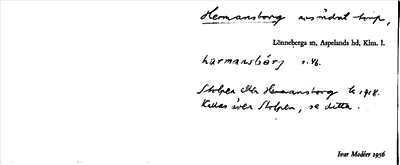 Hermansborg avsöndrat torp,
Lönneberga sn, Aspelands hd, Klm. l.
harmansbörj s. 46.
Stolpen eller Hermansborg tr 1918.
Kallas även Stolpen, se detta.
Ivar Modéer 1936